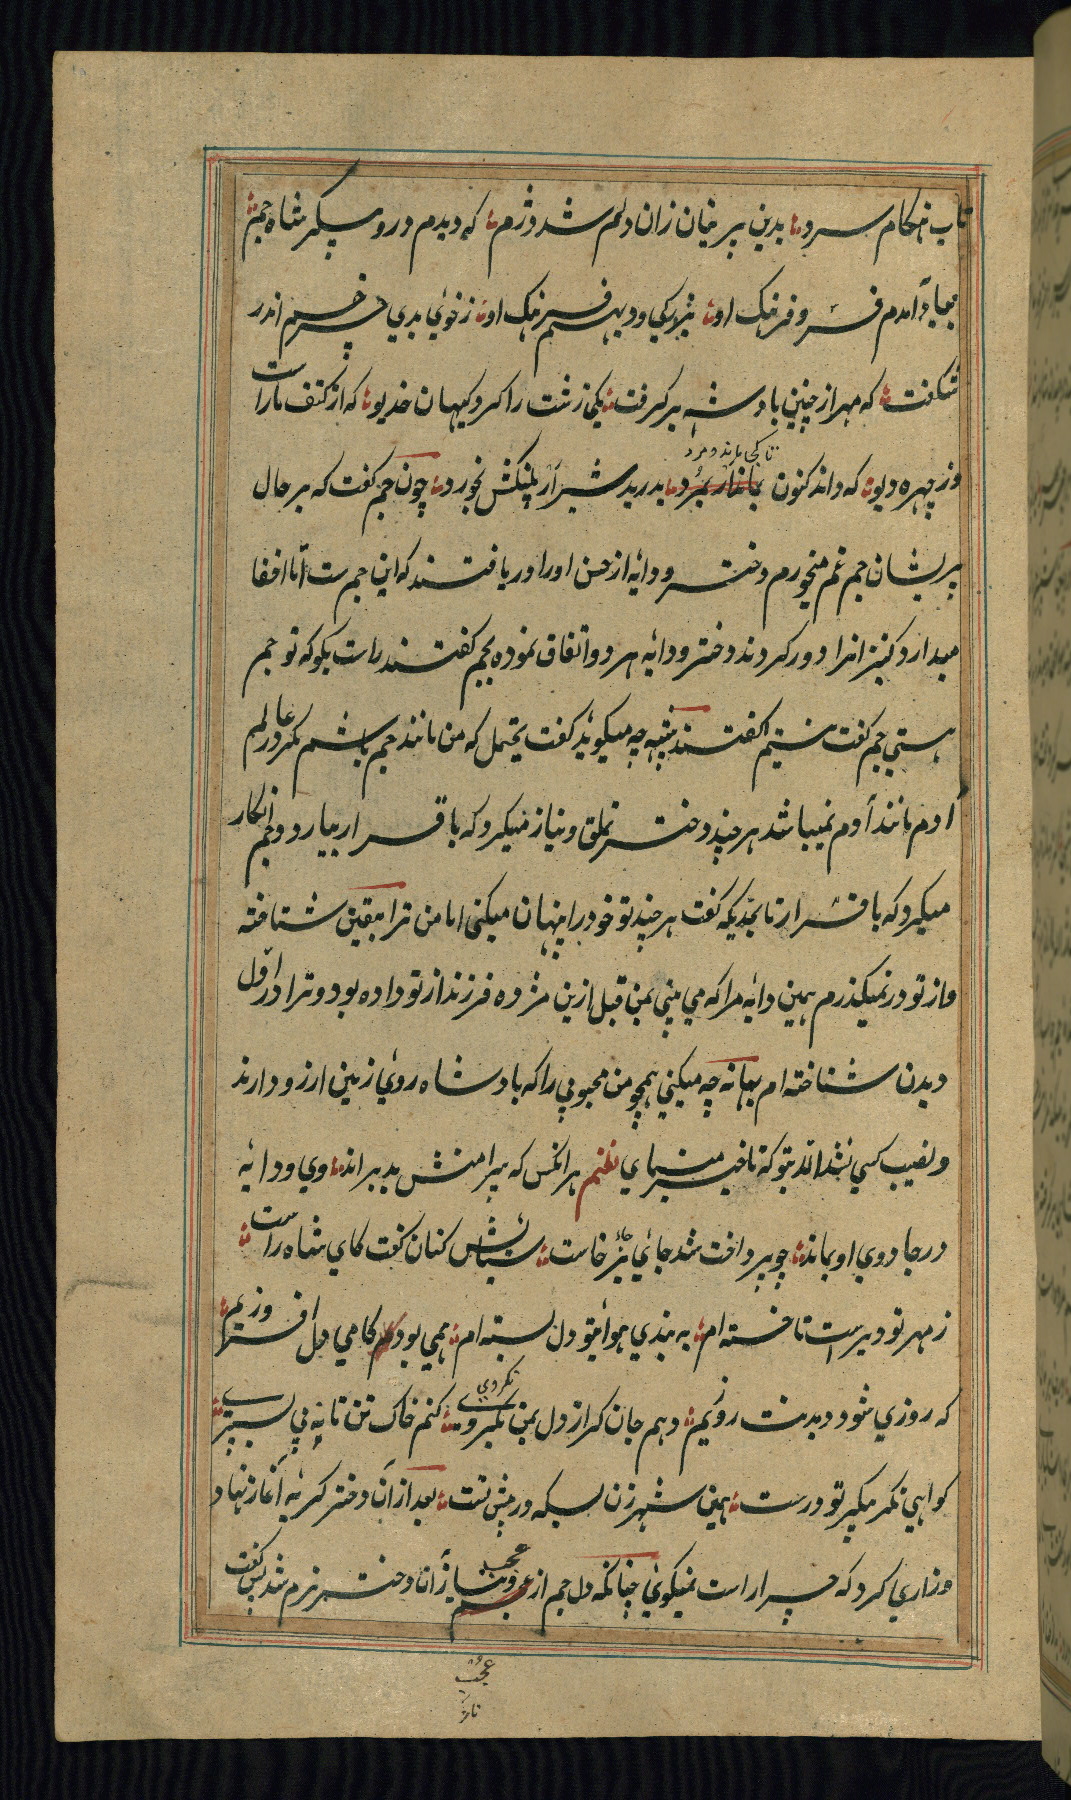 تاب هنکام سرد بدین پرنیان زان دلم شد دژم که دیدم درو پیکر شاه جم
بیاد آمدم فر و فرهنک او بزرکی و دیهیم هنک او ز خوئی بدی چرخم اندر
شکفت که مهر از چنین پادشه برکرفت یکی زشت را کرد کیهان خدیو که از کتف مارا ست
وز چهره دیو که داند کنون تا کجی ماند و مرد بدرید شیر ار پلنکش بخورد چون جم کفت که بر حال
پریشان جم غم میخورم دختر و دایه از حسن او را دریافتند که این جم ست امّا اخفا
میدارد کنیزانرا دور کردند و دختر و دایه هر دو اتفاق نموده بجم کفتند راست بکو که تو جم
هستی جم کفت نیستم کفتند چه میکوید کفت یحتمل که من مانند جم باشم مکر در عالم
آدم مانند آدم نمیباشد هر چند دختر تملق و نیاز میکرد که باقرار بیارد و جم انکار
میکرد که باقرار تا بحدیکه کفت هر چند تو خود را پنهان میکنی اما من ترا بیقین شناخته
و از تو در نمیکذرم همین دایه مرا که می بینی بمن قبل ازین مژده فرزند از تو داده بود و ترا در اوّل
دیدن شناخته ام بهانه چه میکنی همچو من محبوبی را که پادشاه روئی زمین ارزو دارند
و نصیب کسی نشد اند بتو که تاخیر مینمای نظم هر انکس که پیرامنش بد براند وی و دایه
در جادوی او بماند چو پردخت شد جائی برخاست ستایش کنان کفت کای شاه راست
ز مهر تو دیر است تا خسته ام به بندی هوائیتو دل بسته ام همی بود کامی دل افروزیم
که روزی شود دیدنت روزیم دهم جان کر از دل بمن نکروی کنم خاک تن تا به پی بسپری
کواهی نکر پیکر تو درست همین شهر زن بسکه در پیش تست بعد از آن دختر کریه آغاز نهاد
و زاری کرد که چرا راست نمیکوئی چنانکه دل جم از عجب و نیاز آن دختر نرم شد پس کفت
عجب